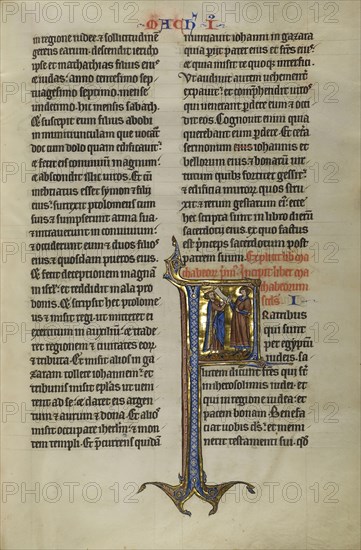 MACH I
in regione iudee & sollicitudinem
gerens earum. descendit iericho
ipse et mathathias filius eius
& iudas. anno centesimo sep
tuagesimo septimo. mense
undecimo. hic mensis sabath.
& suscepit eum filius abobi
in munitiunculam que uocat̄
doc cum dolo quam edificauit.
& fecit ei conuiuium magnum.
& abscondit illic uiros. Et cum
inebriatus esset symon & filij
eius. surrexit ptolomeus cum
suis & sumpserunt arma sua.
& intrauerunt in conuiuium.
& occiderunt eum & duos filios
eius & quosdam pueros eius.
& fecit deceptionem magnam
in israel. et reddidit mala pro
bonis. & scripsit hec ptolome
us. et misit regi ut mitteret ei
exercitum in auxilium & trade
ret regionem & ciuitates eor̄
& tributa. Et misit alios in ga
zaram tollere iohannem. et
tribunis misit epl̄as ut ueni
rent ad se. & daret eis argen
tum & aurum & dona. Et alios
misit occupare ihrl̄m. & mon
tem templi. Et p̄currens quidā
nuntiauit iohanni in gazara
quia perijt pater eius et fr̄es eiꝰ
& quia misit te quoque interfici.
Ut audiuit autem uehementer
expauit. et comprehendit uiros
qui uenerant perdere eum & occi
dit eos. Cognouit enim quia
querebant eum perdere. Et cetera
sermonum eius iohannis et
bellorum eius & bonarum uir
tutum quibus fortiter gessit.
& edificia murorum quos struxit
& rerum gestarum eius ecce
hec scripta sunt in libro dierum
sacerdotij eius. ex quo factus
est princeps sacerdotum post
patrem suum. Explicit lib' ma
chabeor̄ pm̄'. Incipit liber ma
chabeorum
scds.
Fratribus
qui sunt
per egyptum
iudeis. sa
lutem dicunt fr̄es qui sūt
in iherosolimis iudei. et
qui in regione iudea. et
pacem bonam. Benefa
ciat uobis ds̄. et memi
nerit testamenti sui. qd̄